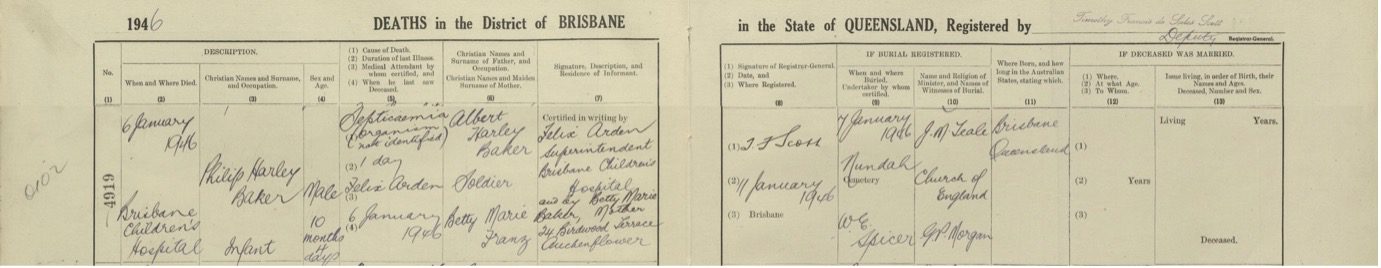 1946 DEATHS in the District of BRISBANE in the State of QUEENSLAND, Registered by Timothy Francis de Sales Scott
Deputy Registrar-General.
DESCRIPTION.
No.
(1)
When and Where Died.
(2)
Christian Names and Surname, and Occupation.
(3)
Sex and Age.
(4)
(1) Cause of Death.
(2) Duration of last Illness.
(3) Medical Attendant by whom certified, and
(4) When he last saw Deceased.
(5)
Christian Names and Surname of Father, and Occupation.
Christian Names and Maiden Surname of Mother.
(6)
Signature, Description, and Residence of Informant.
(7)
(1) Signature of Registrar-General.
(2) Date, and
(3) Where Registered.
(8)
IF BURIAL REGISTERED.
When and where Buried. Undertaker by whom certified.
(9)
Name and Religion of Minister, and Names of Witnesses of Burial.
(10)
Where Born, and how long in the Australian States, stating which.
(11)
IF DECEASED WAS MARRIED.
(1) Where,
(2) At what Age.
(3) To Whom.
(12)
Issue living, in order of Birth, their Names and Ages.
Deceased, Number and Sex.
(13)
0102
4919
6 January
1946
Brisbane
Children's
Hospital
Philip Harley
Baker
Infant
Male
10
months
4
days
Septicaemia
(organism
not identified)
(2) 1 day
Felix Arden
(3)
6 January
(4) 1946
Albert
Harley
Baker
Soldier
Betty Marie
Franz
Certified in writing by
Felix Arden
Superintendent
Brisbane Children's
Hospital
and by Betty Marie
Baker, Mother
24 Birdwood Terrace
Auchenflower
(1) T F Scott
(2) 11 January
1946
(3) Brisbane
7 January
1946
Nundah
Cemetery
W. E.
Spicer
J. M. Teale
Church of
England
G. P. Morgan
Brisbane
Queensland
(1)
(2) Years
(3)
Living Years.
Deceased.